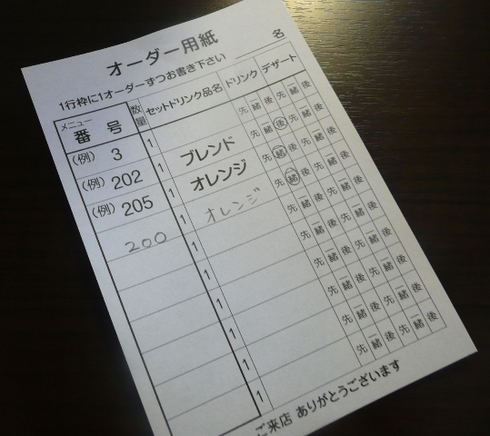 オーダー用紙
1行枠に1オーダーずつお書き下さい
名
メニュー 番号 数量 セットドリンク品名 ドリンク デザート
(例) 3 1 先 一緒 後 先 一緒 後
(例) 202 1 ブレンド 先 一緒 後 先 一緒 後
(例) 205 1 オレンジ 先 一緒 後 先 一緒 後
200 1 オレンジ 先 一緒 後 先 一緒 後
1 先 一緒 後 先 一緒 後
1 先 一緒 後 先 一緒 後
1 先 一緒 後 先 一緒 後
1 先 一緒 後 先 一緒 後
1 先 一緒 後 先 一緒 後
1 先 一緒 後 先 一緒 後
ご来店 ありがとうございます